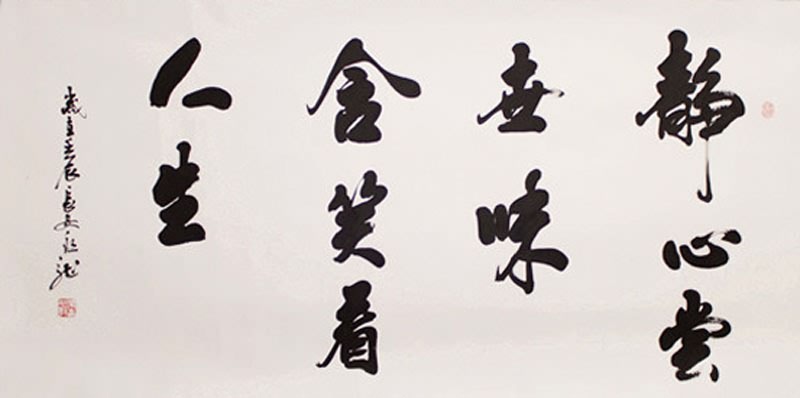 静心尝
世味
含笑看
人生
岁在壬辰长安